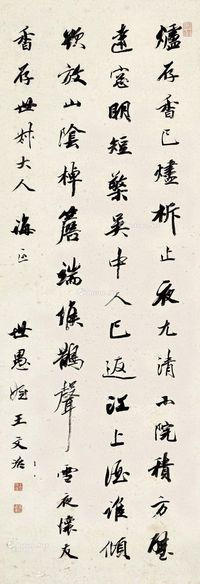 爐存香已燼柝止夜尤清小院積方
遠窗明短檠吳中人已返江上酒誰傾
欲放山陰棹簷端候鵲聲 雪夜懷友
香存世叔大人 誨正 世愚姪王文治